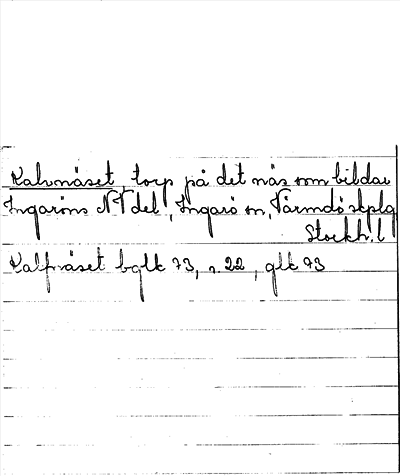 Kalvnäset, torp på det näs som bildar
Ingaröns NV del, Ingarö sn, Värmdö skplg
Stockh. l
Kalfnäset bglk 73, s. 22, glk 73